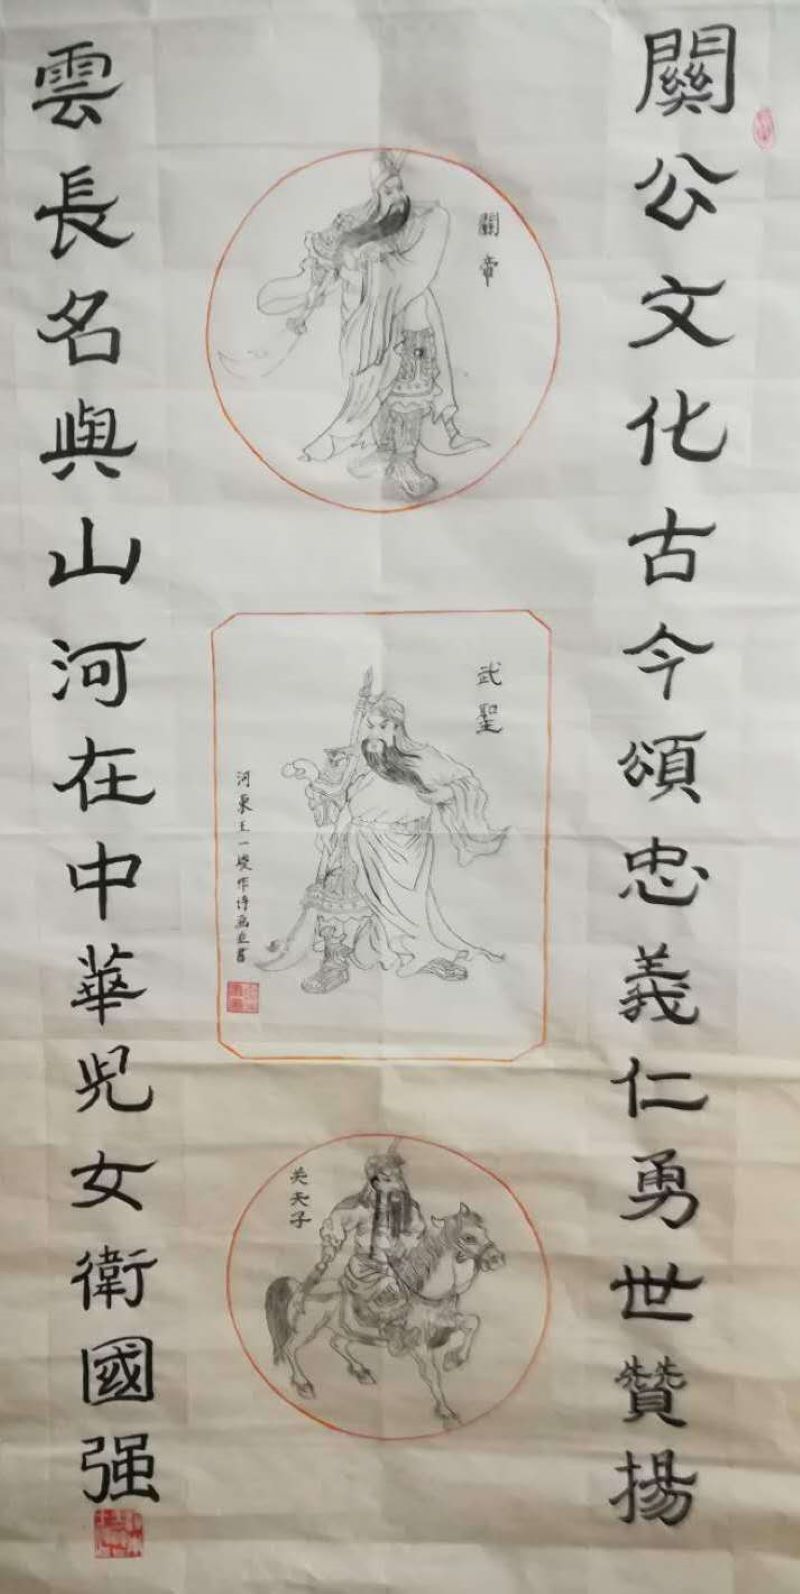 關公文化古今頌忠義仁勇世贊揚
關帝
武聖
河東王一
作詩畫並書
关夫子
雲長名與山河在中華兒女衛國强